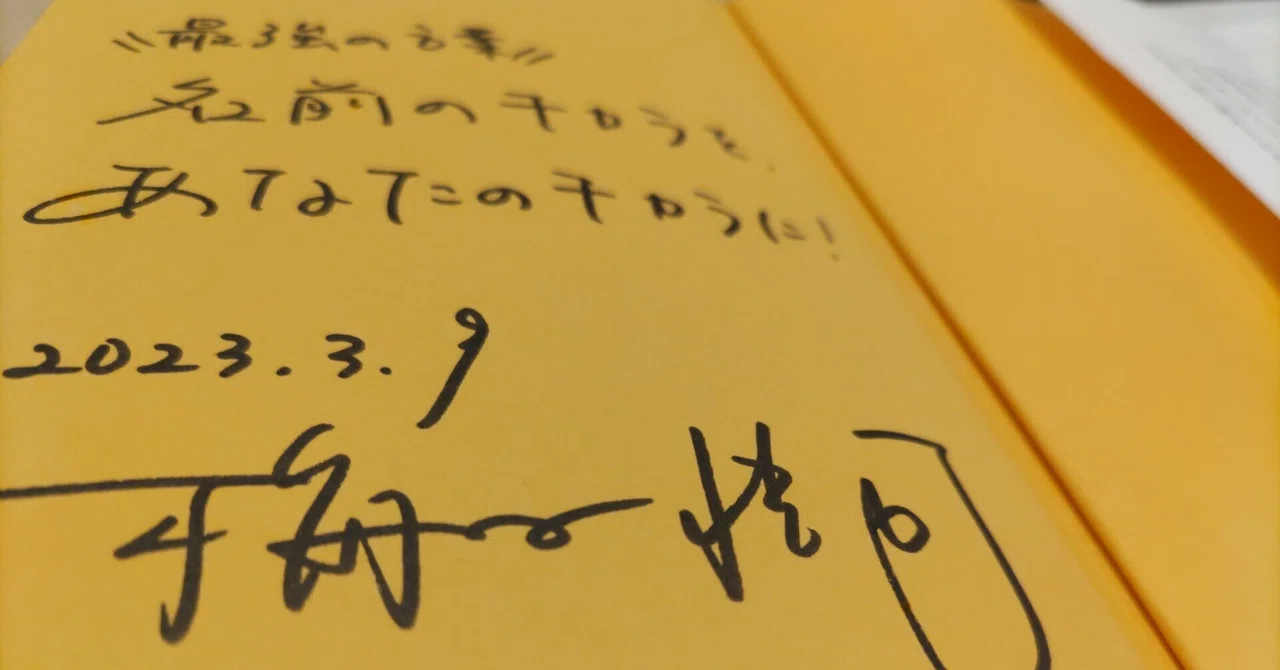 〝最強の言葉〟
名前のチカラを、
あなたのチカラに!
2023.3.9